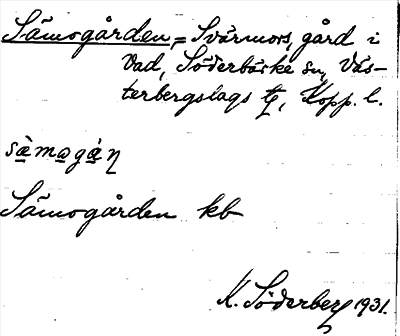 Sämogården, = Svärmors, gård i
Vad, Söderbärke sn, Väs-
terbergslags tg, Kopp. l.
Sämogården kb
K. Söderberg 1931.